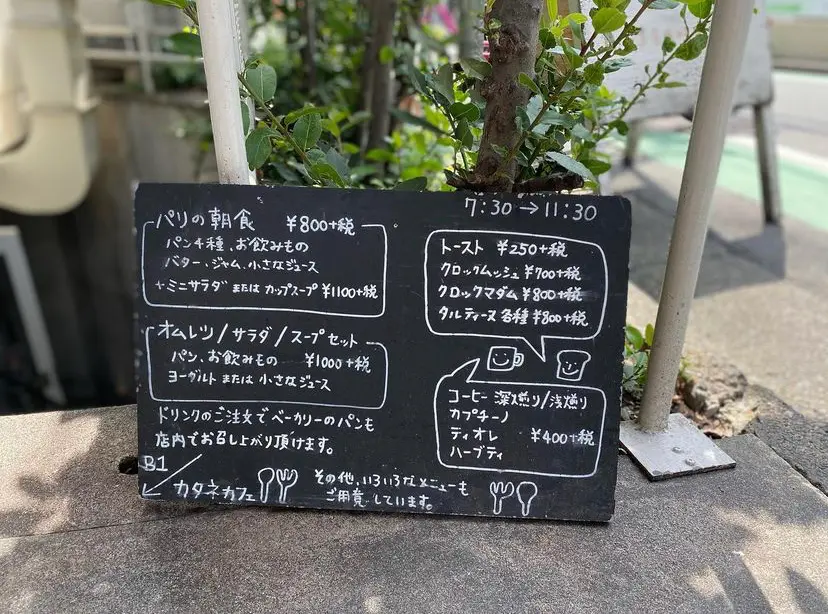 7:30→11:30
パリの朝食 ¥800+税
パン4種、お飲みもの
バター、ジャム、小さなジュース
+ミニサラダ または カップスープ ¥1100+税
オムレツ/サラダ/スープセット
パン、お飲みもの ¥1000+税
ヨーグルト または 小さなジュース
ドリンクのご注文でベーカリーのパンも
店内でお召し上がり頂けます。
B1
カタネカフェ
トースト ¥250+税
クロックムッシュ ¥700+税
クロックマダム ¥800+税
タルティーヌ 各種 ¥800+税
コーヒー 深煎り/浅煎り
カプチーノ
ティオレ ¥400+税
ハーブティ
その他、いろいろなメニューも
ご用意しています。